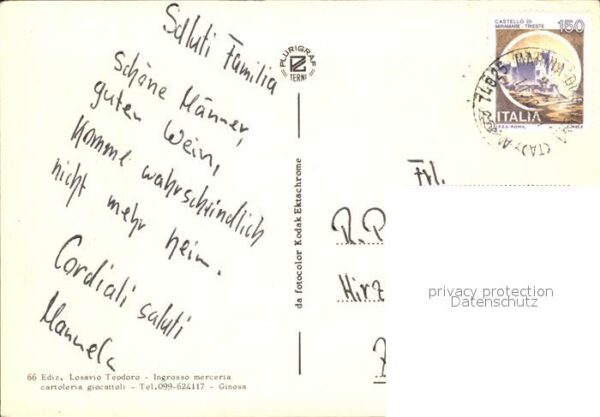 Saluti Familia
Schöne Männer,
guten Wein,
komme wahrscheindlich
nicht mehr heim.
Cordiali saluti
Manuela
66 Ediz. Losavio Teodoro - Ingrosso merceria
cartoleria giocattoli - Tel.099-624117 - Ginosa
PLURIGRAF
TERNI
da fotocolor Kodak Ektachrome
CASTELLO DI
MIRAMARE TRIESTE
150
ITALIA
74025
Frl.
R.P
Hirz
privacy protection
Datenschutz